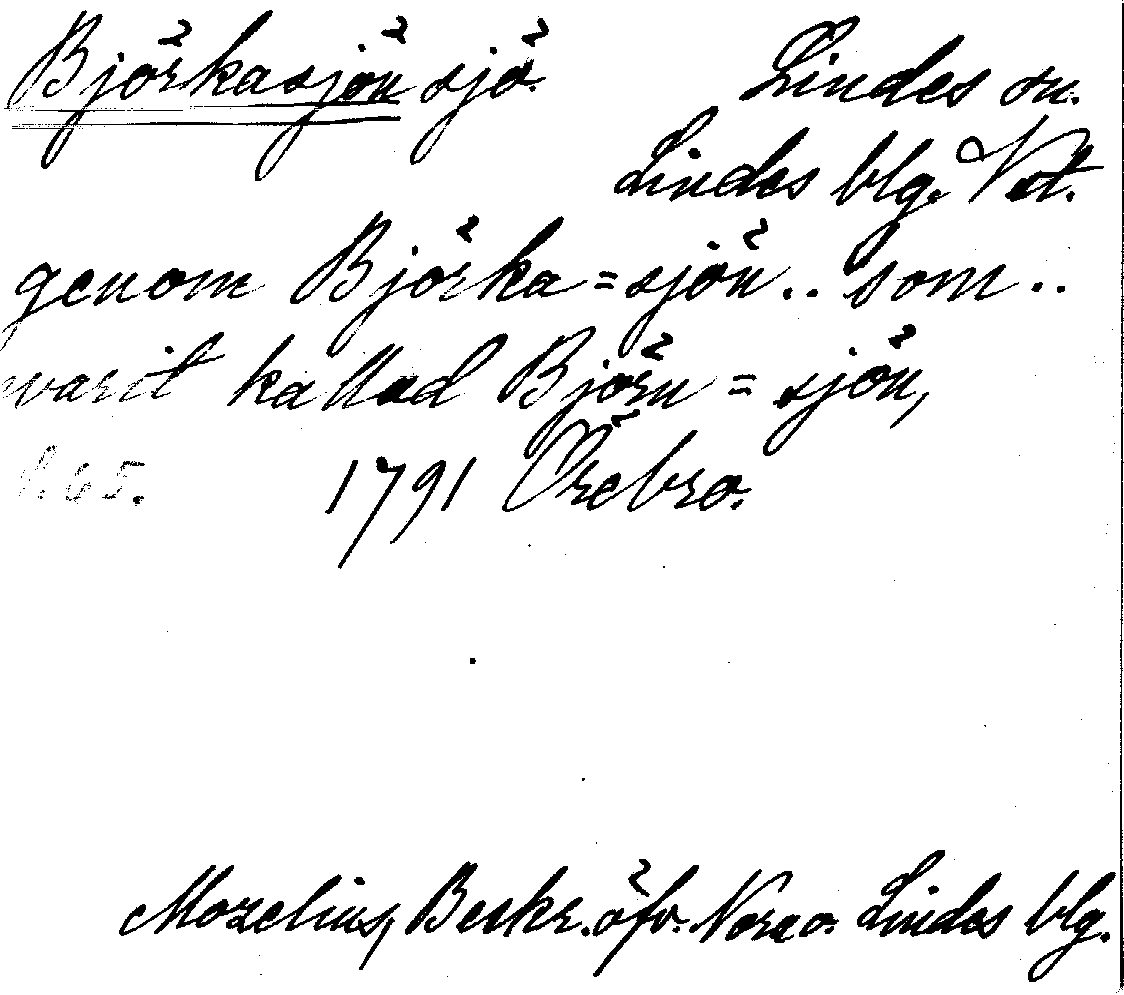 Björkasjön sjö. Lindes sn.
Lindes blg. Vstl.
genom Björka=sjön .. som ..
warit kallad Björn=sjön,
s. 65. 1791 Örebro.
Mozelius, Beskr. öfv. Nora o. Lindes blg.